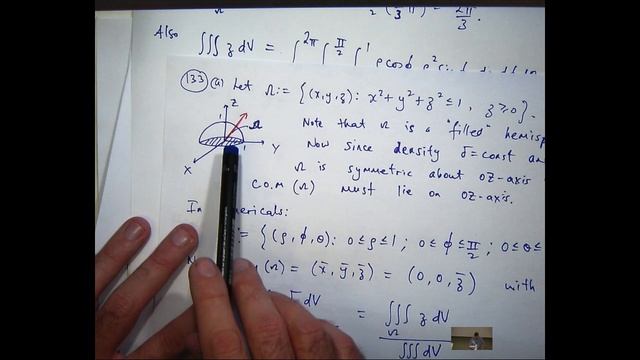 2 (2/3 π) = 2π/3.
Also ∭ z dV = ∫ 2π ∫ π/2 ∫ 1 ρ cosϕ ρ²
(133) (a) Let Ω := {(x,y,z): x²+y²+z² ≤ 1, z ≥ 0}.
Z 1 Ω 1 Y X
Note that Ω is a "filled"
Now since density δ=const
Ω is symmetric about OZ-axis
C.O.M (Ω) must lie on OZ-axis.
= {(ρ, ϕ, θ): 0 ≤ ρ ≤ 1; 0 ≤ ϕ ≤ π/2; 0 ≤ θ ≤
(Ω) = (x̄, ȳ, z̄) = (0, 0, z̄) with
dV = ∭Ω z dV
∭ dV